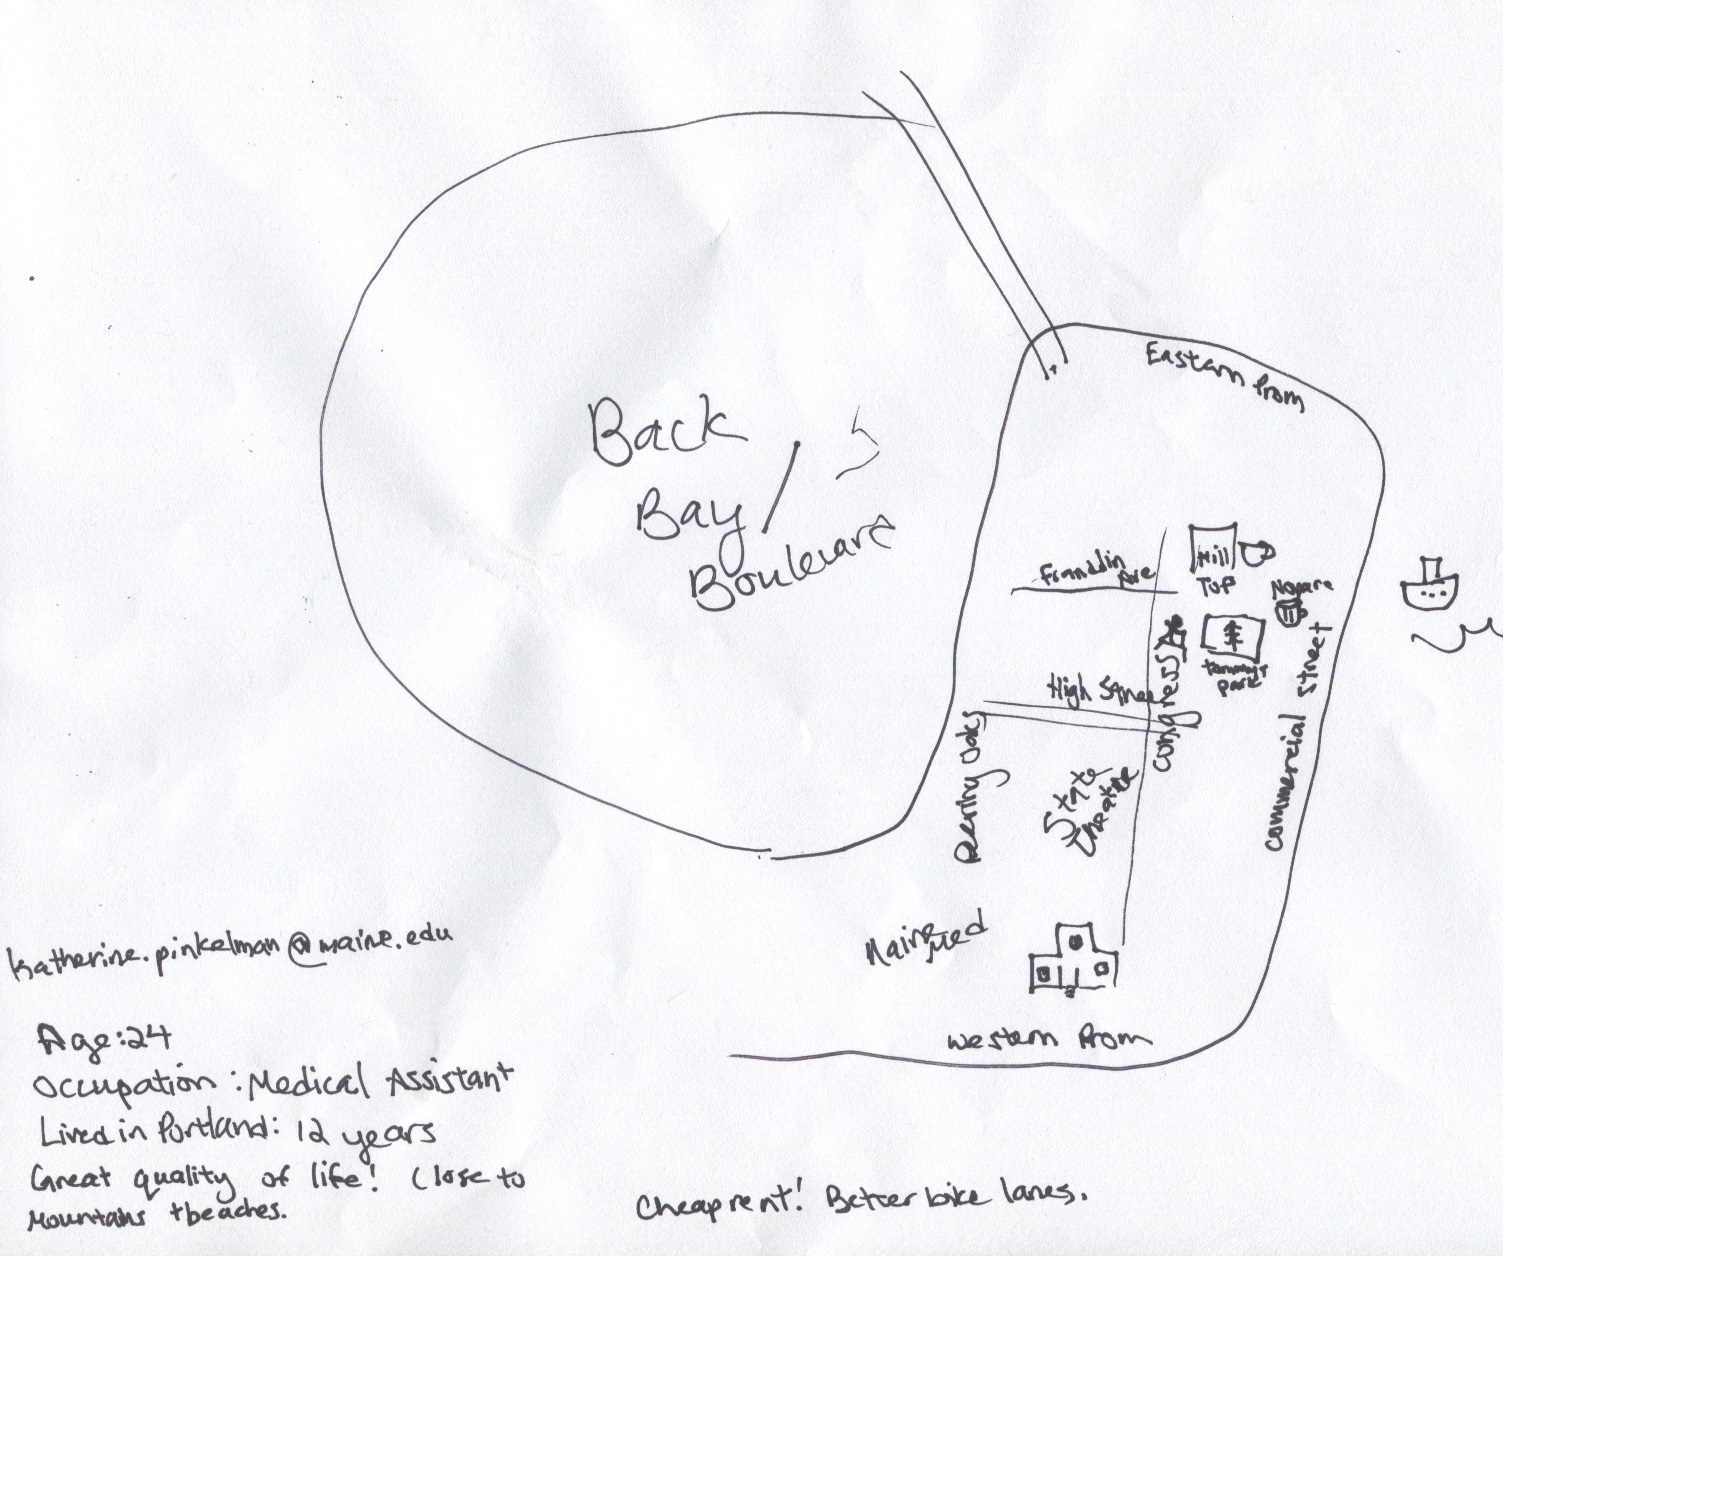 Eastern Prom
Back
Bay/
Boulevard
Hill
Top
Franklin
Ave
Nopare
Tommy's
park
High Street
Congress
Commercial Street
Deering Oaks
State
theatre
Maine Med
Western Prom
katherine.pinkelman@maine.edu
Age:24
Occupation: Medical Assistant
Lived in Portland: 12 years
Great quality of life! Close to
mountains + beaches.
Cheap rent! Better bike lanes.